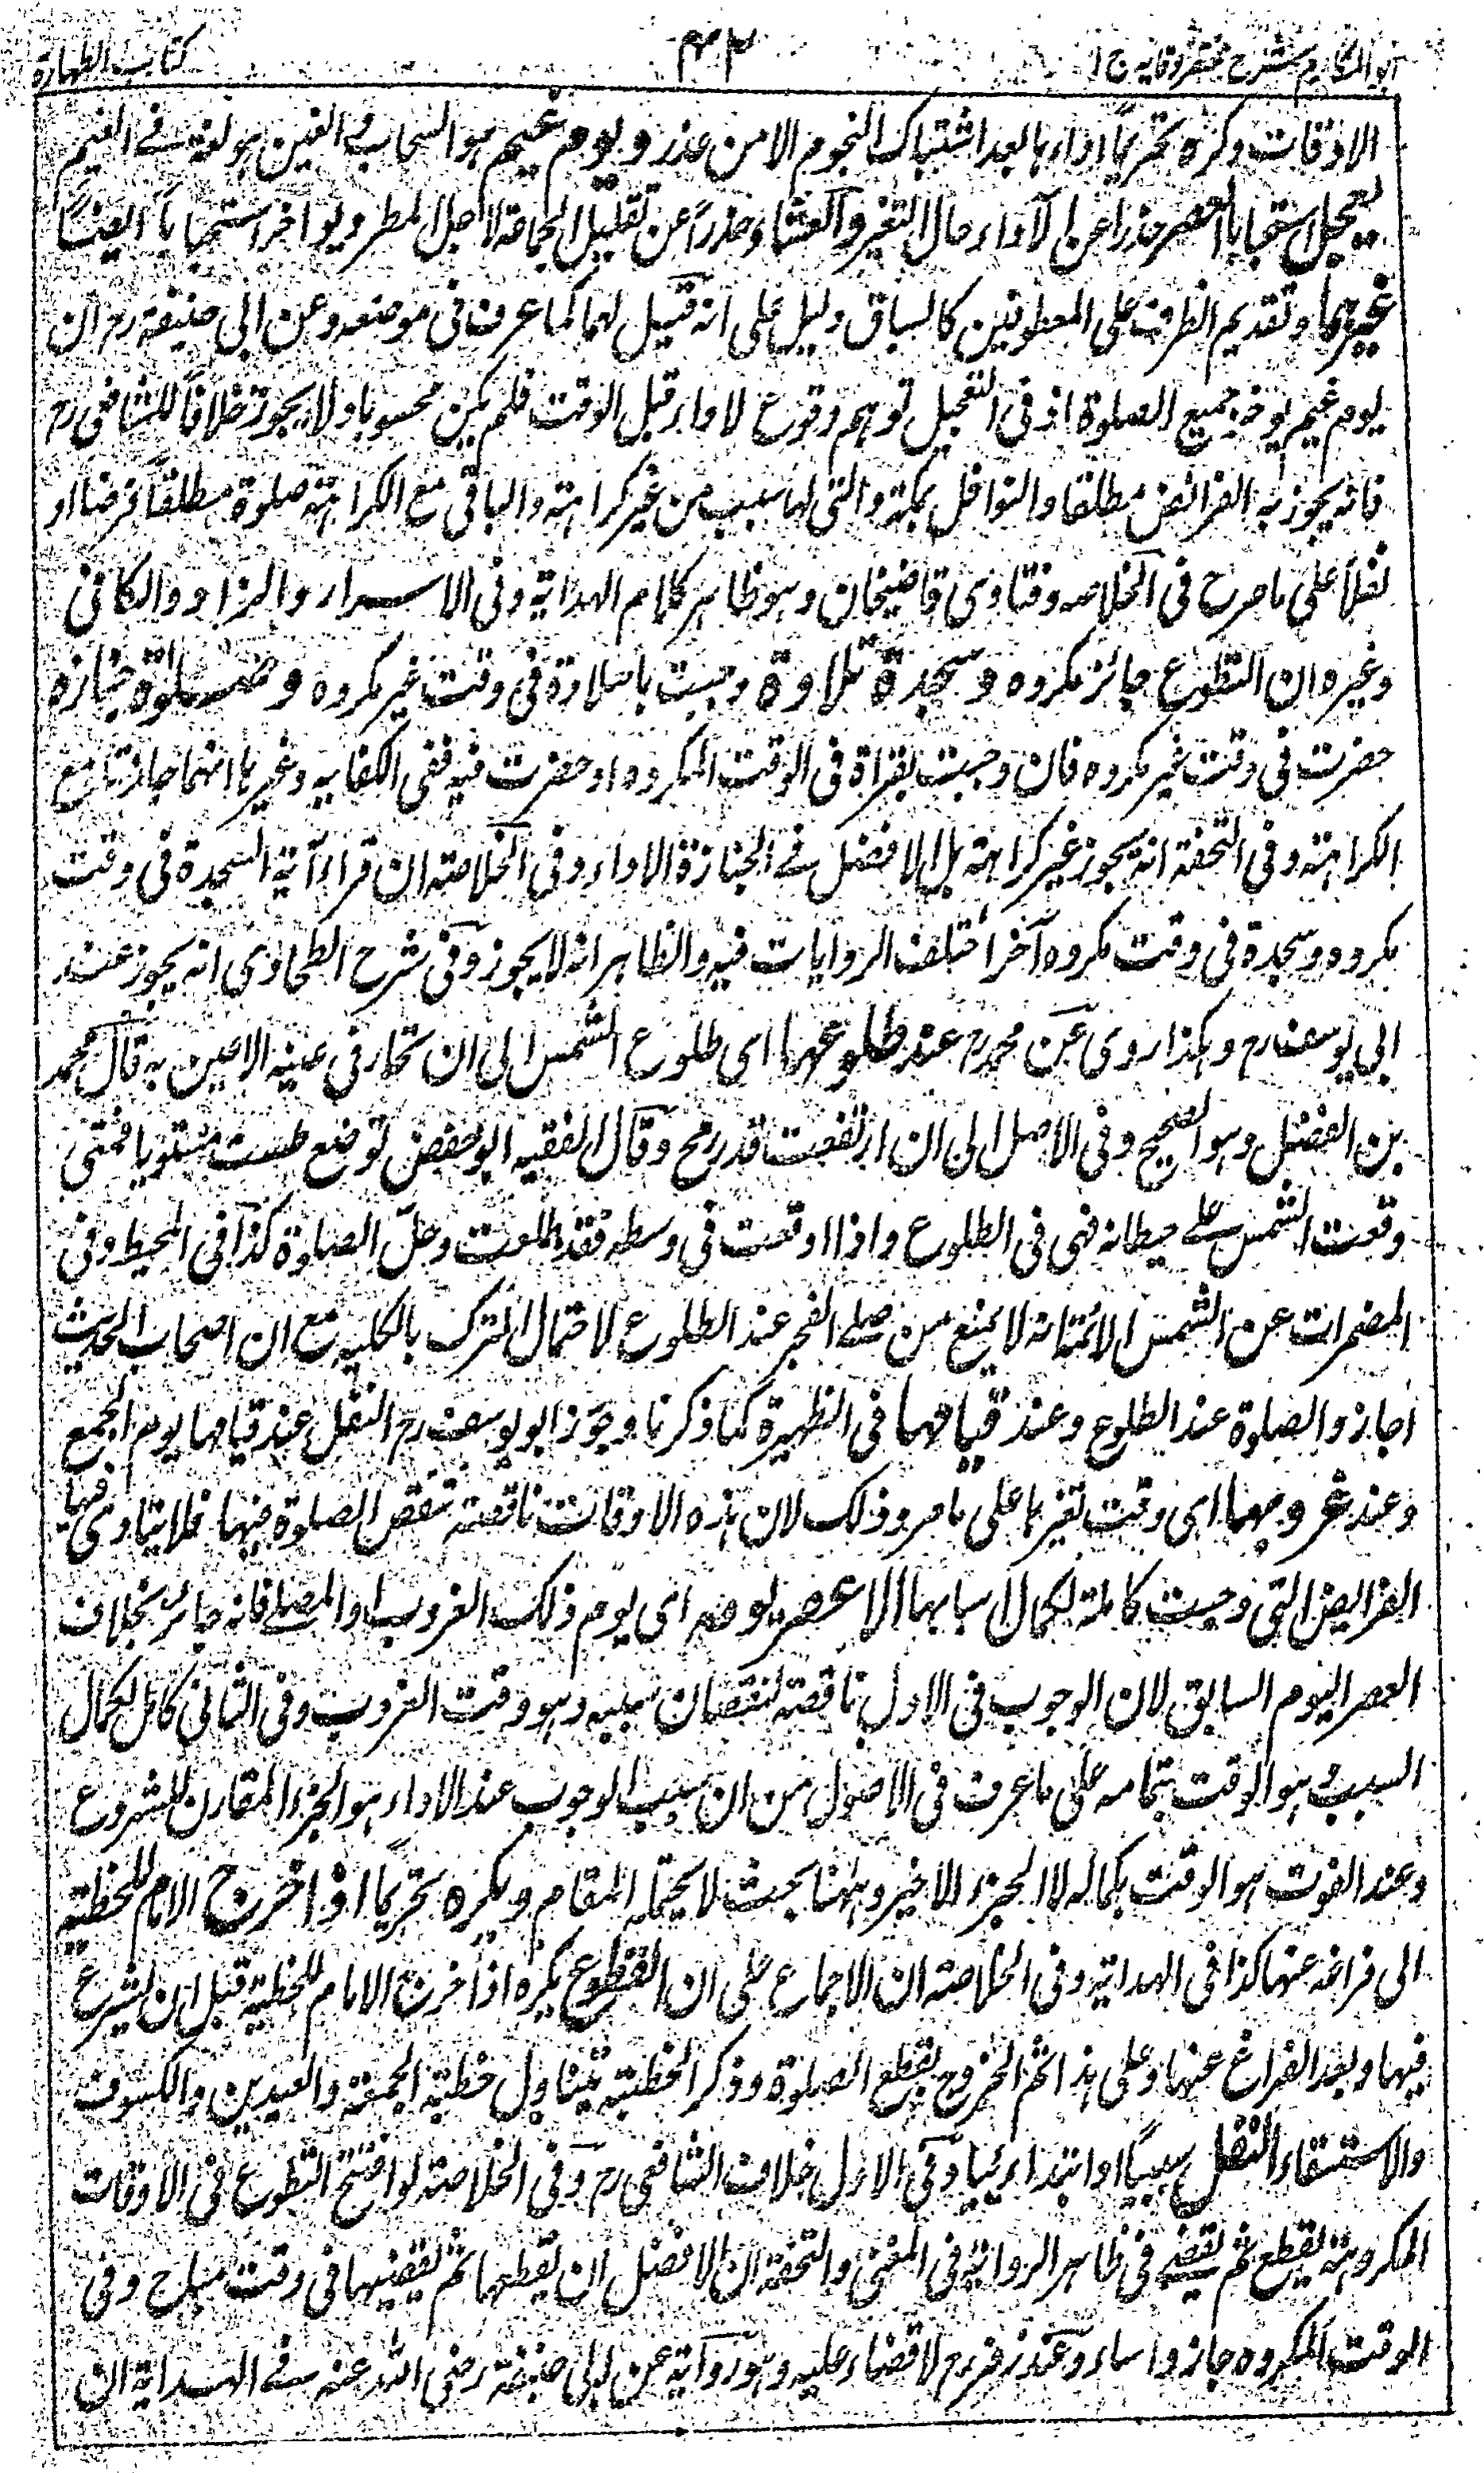 ابو المکارم شرح مختصر وقایه ج ۱
۴۳
کتاب الطهارة
الاوقات وکره تحریماً اداءها بعد اشتباک النجوم الا من عذر و یوم غیم هو السحاب و الغین هو لغة فے الغیم
یعجل استحبابا العصر حذرا عن الاداء حال التغیر و العشاء حذراً عن تقلیل الجماعة لاجل المطر و یؤخر استحباباً ایضاً
غیرهما و تقدیم الظرف علی المعطوفین کالسباق دلیل علی انه قید لهما کما عرف فی موضعه وعن ابی حنیفة رح ان
یوم غیم یوخر جمیع الصلوة اذ فی التعجیل توهم وقوع الاداء قبل الوقت فلم یکن محسوبا ولا یجوز خلافاً للشافعی رح
فانه یجوز به الفرائض مطلقا والنوافل بمکة والتی لها سبب من غیر کراهة والباقی مع الکراهة صلوة مطلقاً فرضا او
نفلاً علی ما صرح فی الخلاصه وفتاوی قاضیخان وهو ظاهر کلام الهدایة وفی الاسرار والزاد والکافی
وغیره ان التطوع جائز مکروه و سجدة تلاوة وجبت بالتلاوة فی وقت غیر مکروه و صلوة جنازه
حضرت فی وقت غیر مکروه فان وجبت بقراة فی الوقت المکروه او حضرت فیه ففی الکفایه وغیرها انهما جازتا مع
الکراهة وفی التحفة انه یجوز غیر کراهة بل الافضل فے الجنازة الاداء وفی الخلاصة ان قراء آیة السجدة فی وقت
مکروه وسجدة فی وقت مکروه آخر اختلف الروایات فیه والظاهر انه لا یجوز وفی شرح الطحاوی انه یجوز عند
ابی یوسف رح وهکذا روی عن محمد رح عند طلوعها ای طلوع الشمس الی ان تحار فی عینه الاعین به قال محمد
بن الفضل وهو الصحیح وفی الاصل الی ان ارتفعت قدر رمح وقال الفقیه ابو حفص توضع طست مستویا فمتی
وقعت الشمس علے حیطانه فهی فی الطلوع واذا وقعت فی وسطه فقد طلعت وحل الصلوة کذا فی المحیط وفی
المضمرات عن الشمس الائمة انه لا یمنع من صلے الفجر عند الطلوع لاحتمال الترک بالکلیه مع ان اصحاب الحدیث
اجازوا الصلوة عند الطلوع وعند قیامها فی الظهیرة کما ذکرنا وجوز ابو یوسف رح النفل عند قیامها یوم الجمع
وعند غروبها ای وقت تغیرها علی ما مر وذلک لان هذه الاوقات ناقصة تنقص الصلوة فیها فلا یتادی فیها
الفرائض التی وجبت کاملة لکمال اسبابها الا عصر یومه ای یوم ذلک الغروب او المصلے فانه جائز بخلاف
العصر الیوم السابق لان الوجوب فی الاول ناقصة لنقصان سببه وهو وقت الغروب وفی الثانی کامل لکمال
السبب وهو الوقت بتمامه علی ما عرف فی الاصول من ان سبب الوجوب عند الاداء هو الجزء المقارن للشروع
وعند الفوت هو الوقت بکماله لا الجزء الاخیر وههنا بحث لا یحتمله المقام ویکره تحریماً اذا خرج الامام للخطبة
الی فراغه عنها کذا فی الهدایة وفی الخلاصة ان الاجماع علی ان التطوع یکره اذا خرج الامام للخطبة قبل ان یشرع
فیها وبعد الفراغ عنها وعلی هذا ثم الخروج یقطع الصلوة وذکر الخطبة یتناول خطبة الجمعة والعیدین والکسوف
والاستسقاء النفل سببیا او ابتدائیا وفی الاول خلاف الشافعی رح وفی الخلاصة لو افتتح التطوع فی الاوقات
المکروهة یقطع ثم یقضے فی ظاهر الروایة فی المغنی والتحفة ان الافضل ان یقطعها ثم یقضیها فی وقت مباح وفی
الوقت المکروه جاز واساء وعند زفر رح لا قضاء علیه وهو روایة عن ابی حنیفة رضی الله عنه فے الهدایة ان